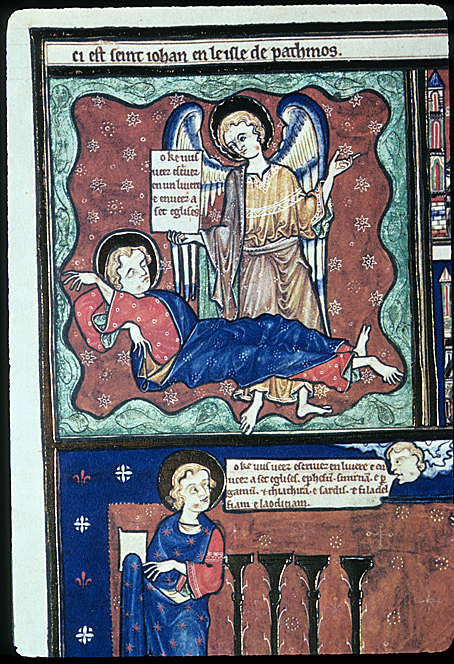 ci est seint iohan en le isle de pathmos.
o ke vus
veez escriuez
en un liuere
e enueez a
set eglises
o ke vus veez escriuez en liuere e en
veez a set eglises. ephesū. smirnā. e per
gamū. e thiathirā. e sardis. e filadel
fiam e laodiciam.